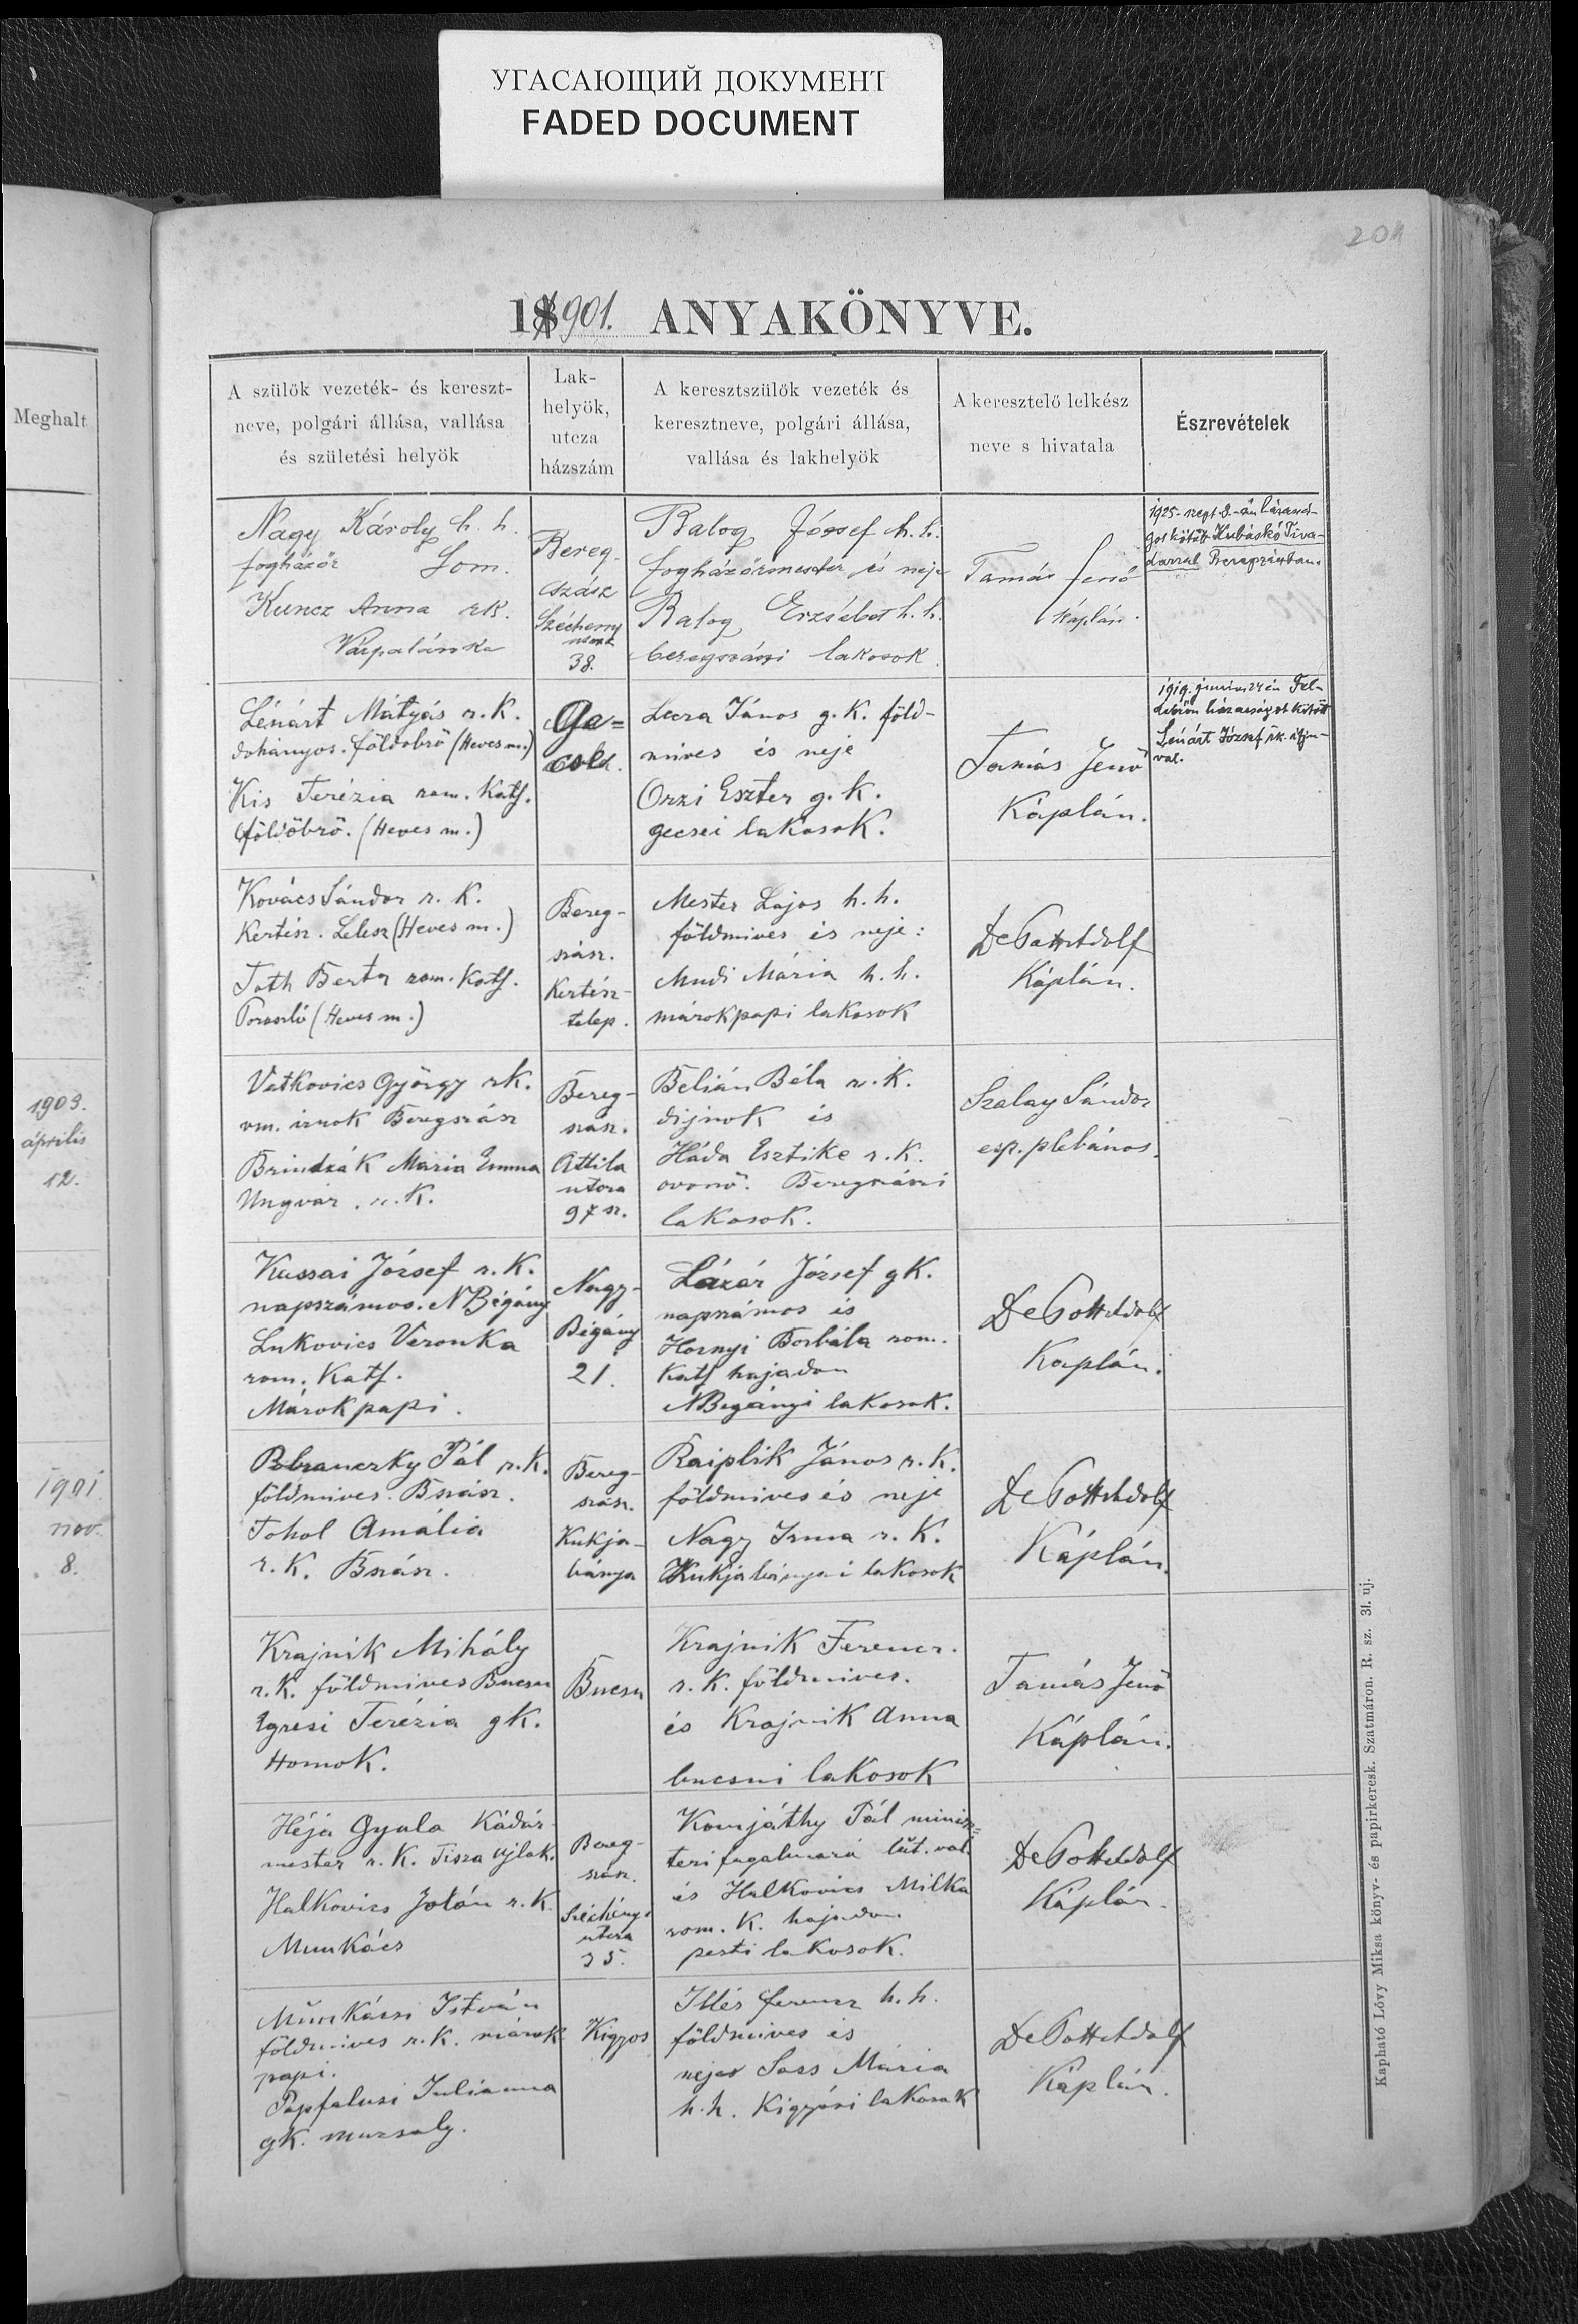 УГАСАЮЩИЙ ДОКУМЕНТ
FADED DOCUMENT
204
18901. ANYAKÖNYVE.
Meghalt
1903.
április
12.
1901.
nov.
8.
A szülők vezeték- és kereszt-
neve, polgári állása, vallása
és születési helyök
Lak-
helyök,
utcza
házszám
A keresztszülők vezeték és
keresztneve, polgári állása,
vallása és lakhelyök
A keresztelő lelkész
neve s hivatala
Észrevételek
Nagy Károly h. h.
fogházőr Som.
Kuncz Anna rk.
Várpalánka
Bereg-
szász
Széchenyi
utcza
38.
Balog József h. h.
fogházőrmester és neje
Balog Erzsébet h. h.
beregszászi lakosok
Tamás Jenő
káplán.
1925. szept 2-án házassá-
got kötött Kubáskó Tiva-
darral Beregszászban.
Lénárt Mátyás r. K.
dohányos. földobrő (Heves m.)
Kis Terézia rom. Kath.
földöbrő. (Heves m.)
Ge=
cse.
Lecra János g. K. föld-
míves és neje
Orzi Eszter g. K.
gecsei lakosok.
Tamás Jenő
Káplán.
1919. junius 24 én Fel-
debrőn házasságot kötött
Lénárt József rk. ifju-
val.
Kovács Sándor r. K.
Kertész. Lelesz (Heves m.)
Toth Berta rom. Kath.
Poroszló (Heves m.)
Bereg-
szász.
Kertész-
telep.
Mester Lajos h. h.
földmives és neje:
Mudi Mária h. h.
márokpapi lakosok
De Pott Adolf
Káplán.
Vetkovics György rk.
vm. irnok Beregszász
Brindzák Mária Emma
Ungvár. r. K.
Bereg-
szász.
Attila
utcza
97 sz.
Belián Béla r. K.
dijnok és
Háda Esztike r. K.
ovonő. Beregszászi
lakosok.
Szalay Sándor
esp. plébános.
Kassai József r. K.
napszámos. N Bégány
Lukovics Veronka
rom. Kath.
Márokpapi.
Nagy-
Bégány
21.
Lázár József gK.
napszámos és
Hornyi Borbála rom.
Kath hajadon
N Begányi lakosok.
De Pott Adolf
Káplán.
Bobranczky Pál r. K.
földmives. Bszász.
Tohol Amália
r. K. Bszász.
Bereg-
szász.
Kukja-
bánya
Raiplik János r. K.
földmives és neje
Nagy Irma r. K.
Kukjabányai lakosok
De Pott Adolf
Káplán.
Krajnik Mihály
r. K. földmives Bucsu
Egresi Terézia gK.
Homok.
Bucsu
Krajnik Ferencz.
r. K. földmives.
és Krajnik Anna
bucsui lakosok
Tamás Jenő
Káplán.
Héja Gyula Kádár
mester r. K. Tisza Ujlak.
Halkovics Jolán r. K.
Munkács
Bereg-
szász.
Széchényi
utcza
35.
Komjáthy Pál minisz=
teri fogalmazó
és Halkovics Milka
rom. K. hajadon
pesti lakosok.
De Pott Adolf
Káplán.
Munkácsi István
földmives r. K. márok
papi.
Papfalusi Julianna
gK. muzsaly.
Kigyos
Illés ferencz h. h.
földmives és
neje Sass Mária
h. h. Kigyósi lakosok
De Pott Adolf
Káplán.
Kapható Lővy Miksa könyv- és papirkeresk. Szatmáron. R. sz. 31. uj.